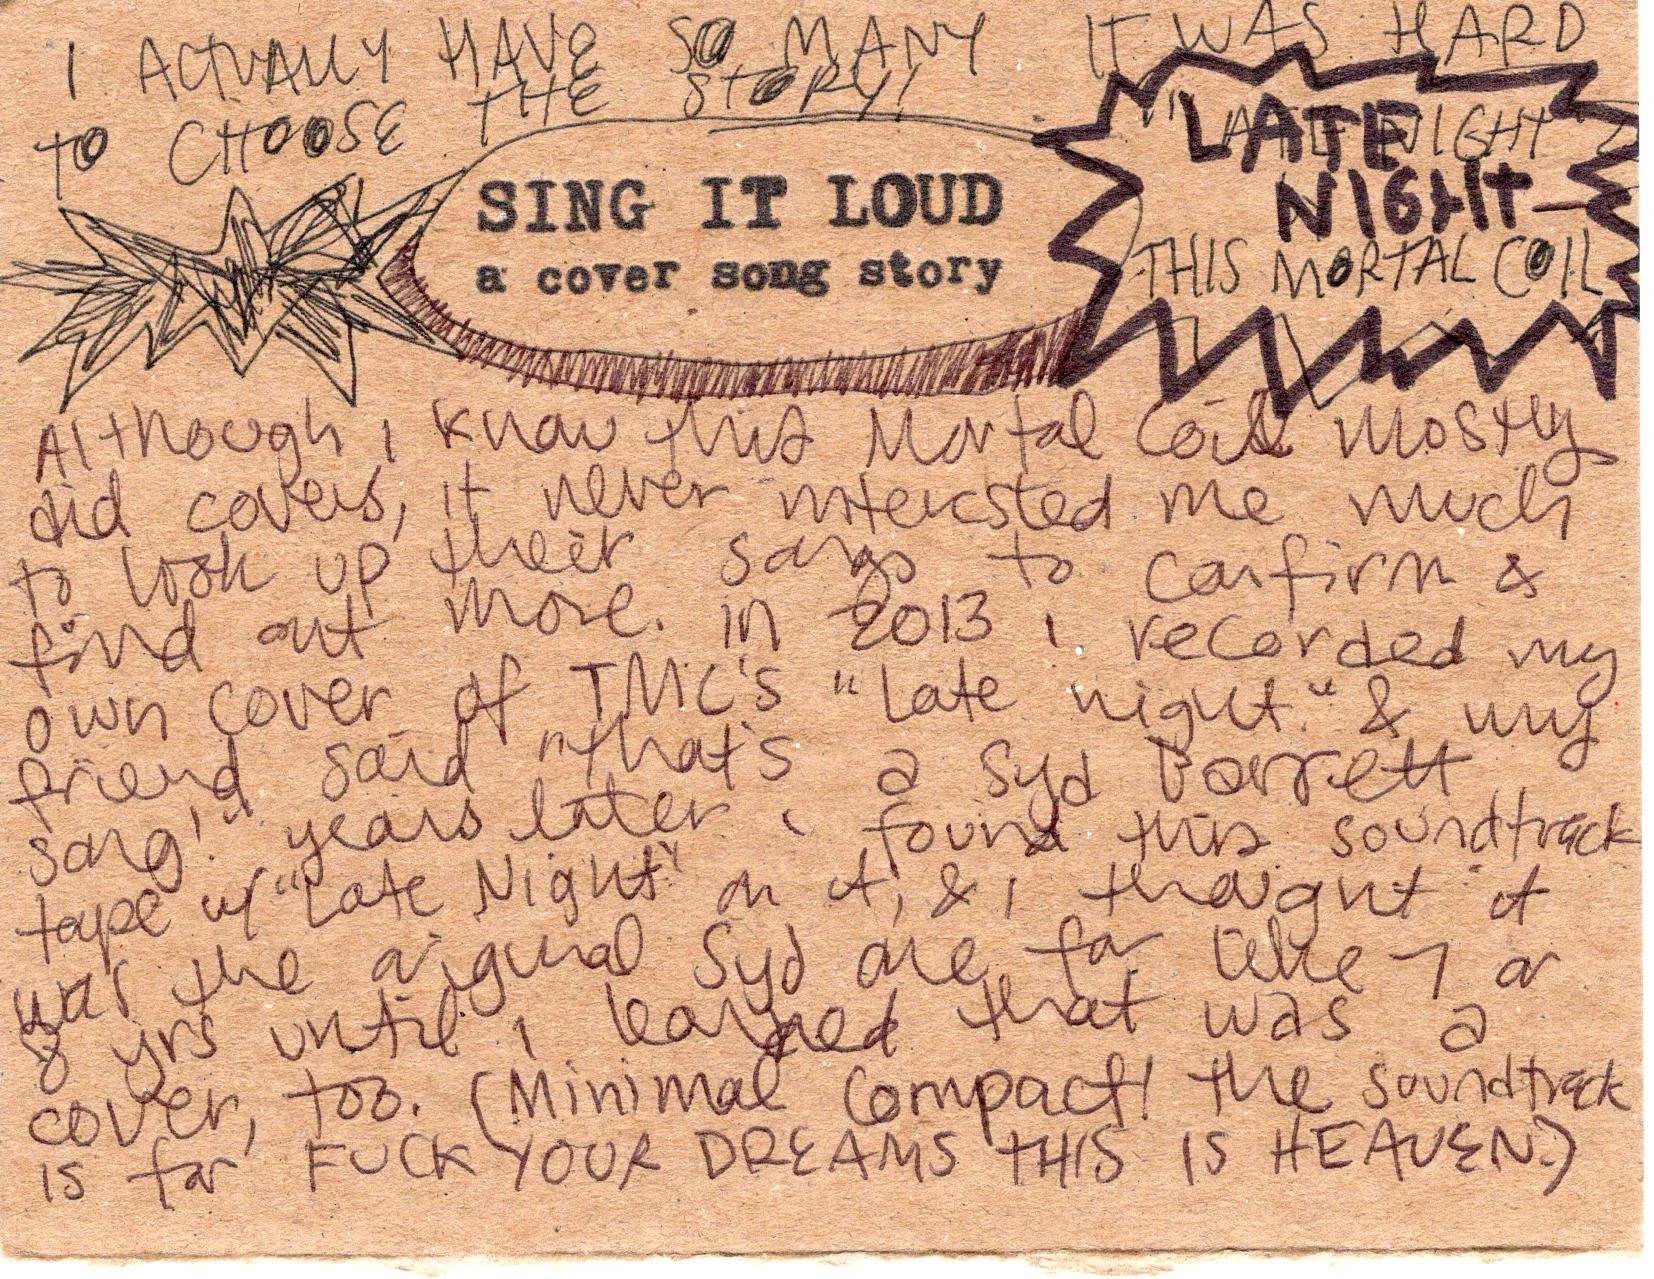 I ACTUALLY HAVE SO MANY IT WAS HARD
TO CHOOSE THE STORY!
SING IT LOUD
a cover song story
"LATE NIGHT"
LATE
NIGHT—
THIS MORTAL COIL
Although i know this Mortal Coil mostly
did covers, it never interested me much
to look up their songs to confirm &
find out more. in 2013 i recorded my
own cover of TMC's "Late night." & my
friend said "that's a Syd Barrett
song!" years later i found this soundtrack
tape w/ "Late Night" on it, & i thought it
was the original Syd one for like 7 or
8 yrs until i learned that was a
cover, too. (Minimal Compact! the soundtrack
is for FUCK YOUR DREAMS THIS IS HEAVEN.)